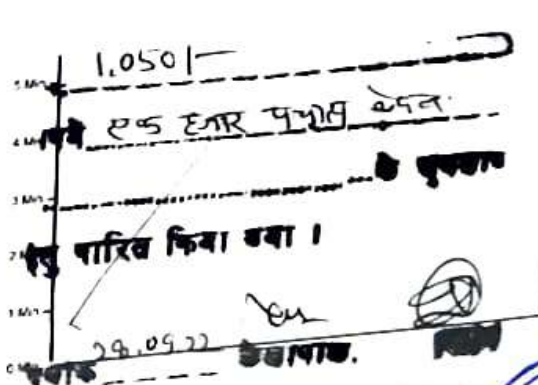 1,050/-
5 Min
4 Min रूपये एक हजार पचास केवल
3 Min के भुगतान
2 Min हेतु पारित किया गया ।
1 Min
0 Min 28.09.22